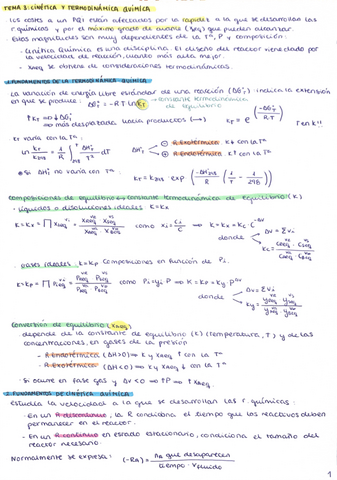 TEMA 3: CINÉTICA Y TERMODINÁMICA QUÍMICA
Los costes a un PQI están afectados por la rapidez a la que se desarrollan las
r químicas y por el máximo grado de avance (Xeq) que pueden alcanzar.
Estas magnitudes son muy dependientes de la Tª, P y composición:
- Cinética Química es una disciplina. El diseño del reactor viene dado por
la velocidad de reacción, cuanto más alta mejor.
- XAeq se obtiene de consideraciones termodinámicas.
1. FUNDAMENTOS DE LA TERMODINÁMICA QUÍMICA
La variación de energía libre estándar de una reacción (ΔG°r) indica la extensión
en que se produce: ΔG°r = -RT ln KT → constante termodinámica de equilibrio
↑KT ⇒ ↓ΔG°r
⇒ más desplazada hacia productos (→)
KT = e^(-ΔG°r/RT) T en K!!
KT varía con la Tª:
ln KT/K298 = 1/R ∫ ΔH°r/T² dT
ΔH°r
⊖ R. Exotérmica: K↓ con la Tª
⊕ R. Endotérmica: K↑ con la Tª
Si ΔH°r no varía con Tª:
KT = K298 · exp (-ΔH°298/R (1/T - 1/298))
composiciones de equilibrio ↔ constante termodinámica de equilibrio (K)
- líquidos o disoluciones ideales K = Kx
como xi = Ci/C → K = Kx = Kc · C^-Δν
donde
Δν = Σνi
- gases ideales: K = Kp Composiciones en función de Pi.
como Pi = yi P ⇒ K = Kp = Ky · P^Δν
donde
Δν = Σνi
Conversión de equilibrio (XAeq)
depende de la constante de equilibrio (K) (temperatura, T) y de las
concentraciones, en gases de la presión
- R. Endotérmica (ΔH>0) ⇒ K y XAeq ↑ con la Tª
- R. Exotérmica (ΔH<0) ⇒ K y XAeq ↓ con la Tª
- Si ocurre en fase gas y Δν<0 ⇒ ↑P ⇒ ↑XAeq
2. FUNDAMENTOS DE CINÉTICA QUÍMICA
Estudia la velocidad a la que se desarrollan las r. químicas:
- En un R. discontinuo, la R condiciona el tiempo que los reactivos deben
permanecer en el reactor.
- En un R. continuo en estado estacionario, condiciona el tamaño del
reactor necesario.
Normalmente se expresa: (-RA) = nA que desaparecen / tiempo · Vfluido
1